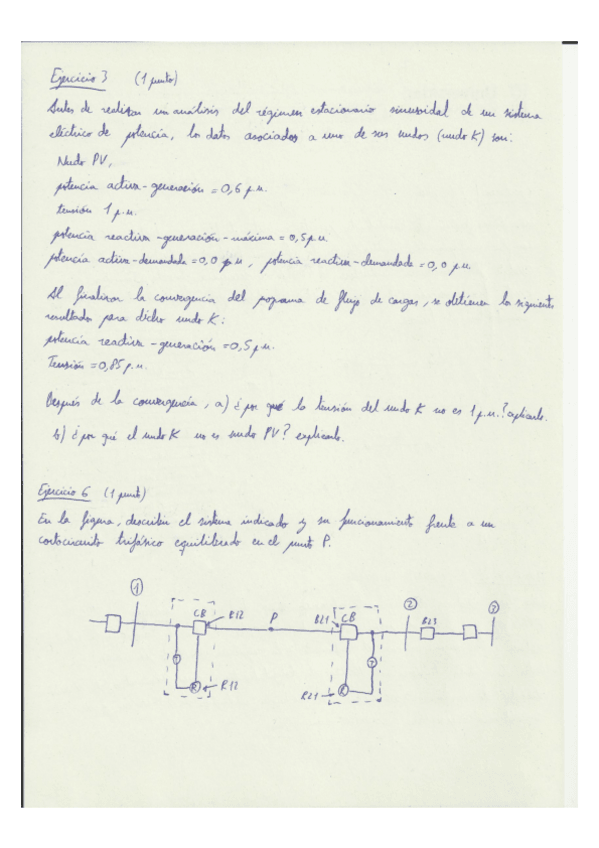 Ejercicio 3 (1 punto)
Antes de realizar un análisis del régimen estacionario sinusoidal de un sistema
eléctrico de potencia, los datos asociados a uno de sus nudos (nudo K) son:
Nudo PV,
potencia activa-generación = 0,6 p.u.
tensión 1 p.u.
potencia reactiva-generación-máxima = 0,5 p.u.
potencia activa-demandada = 0,0 p.u, potencia reactiva-demandada = 0,0 p.u.
Al finalizar la convergencia del programa de flujo de cargas, se obtienen los siguientes
resultados para dicho nudo K:
potencia reactiva-generación = 0,5 p.u.
Tensión = 0,85 p.u.
Después de la convergencia, a) ¿por qué la tensión del nudo K no es 1 p.u.? explicarlo.
b) ¿por qué el nudo K no es nudo PV? explicarlo.
Ejercicio 6 (1 punto)
En la figura, describir el sistema indicado y su funcionamiento frente a un
cortocircuito trifásico equilibrado en el punto P.
1 CB B12 P B21 CB 2 B23 3
R R12 R21 R